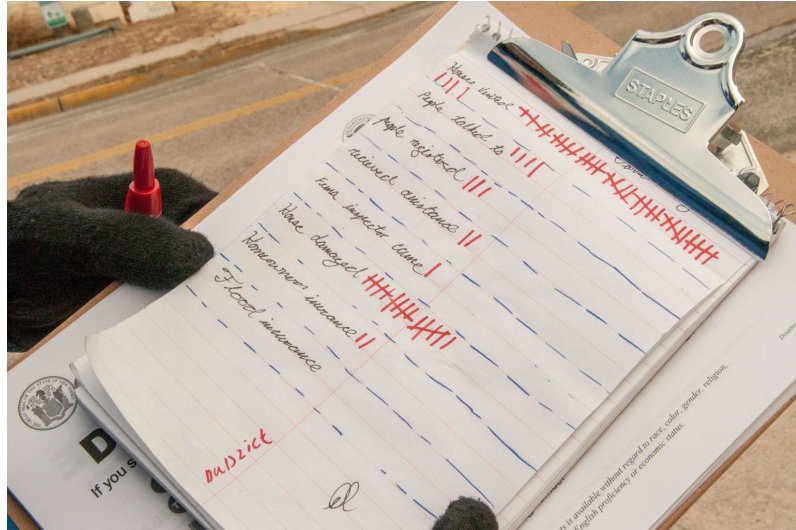 STAPLES
Houses visited
People talked to
people registered
recieved assistance
Fema inspector came
House damaged
Homeowners insurance
Flood insurance
If you s
s is available without regard to race, color, gender, religion,
English proficiency or economic status.